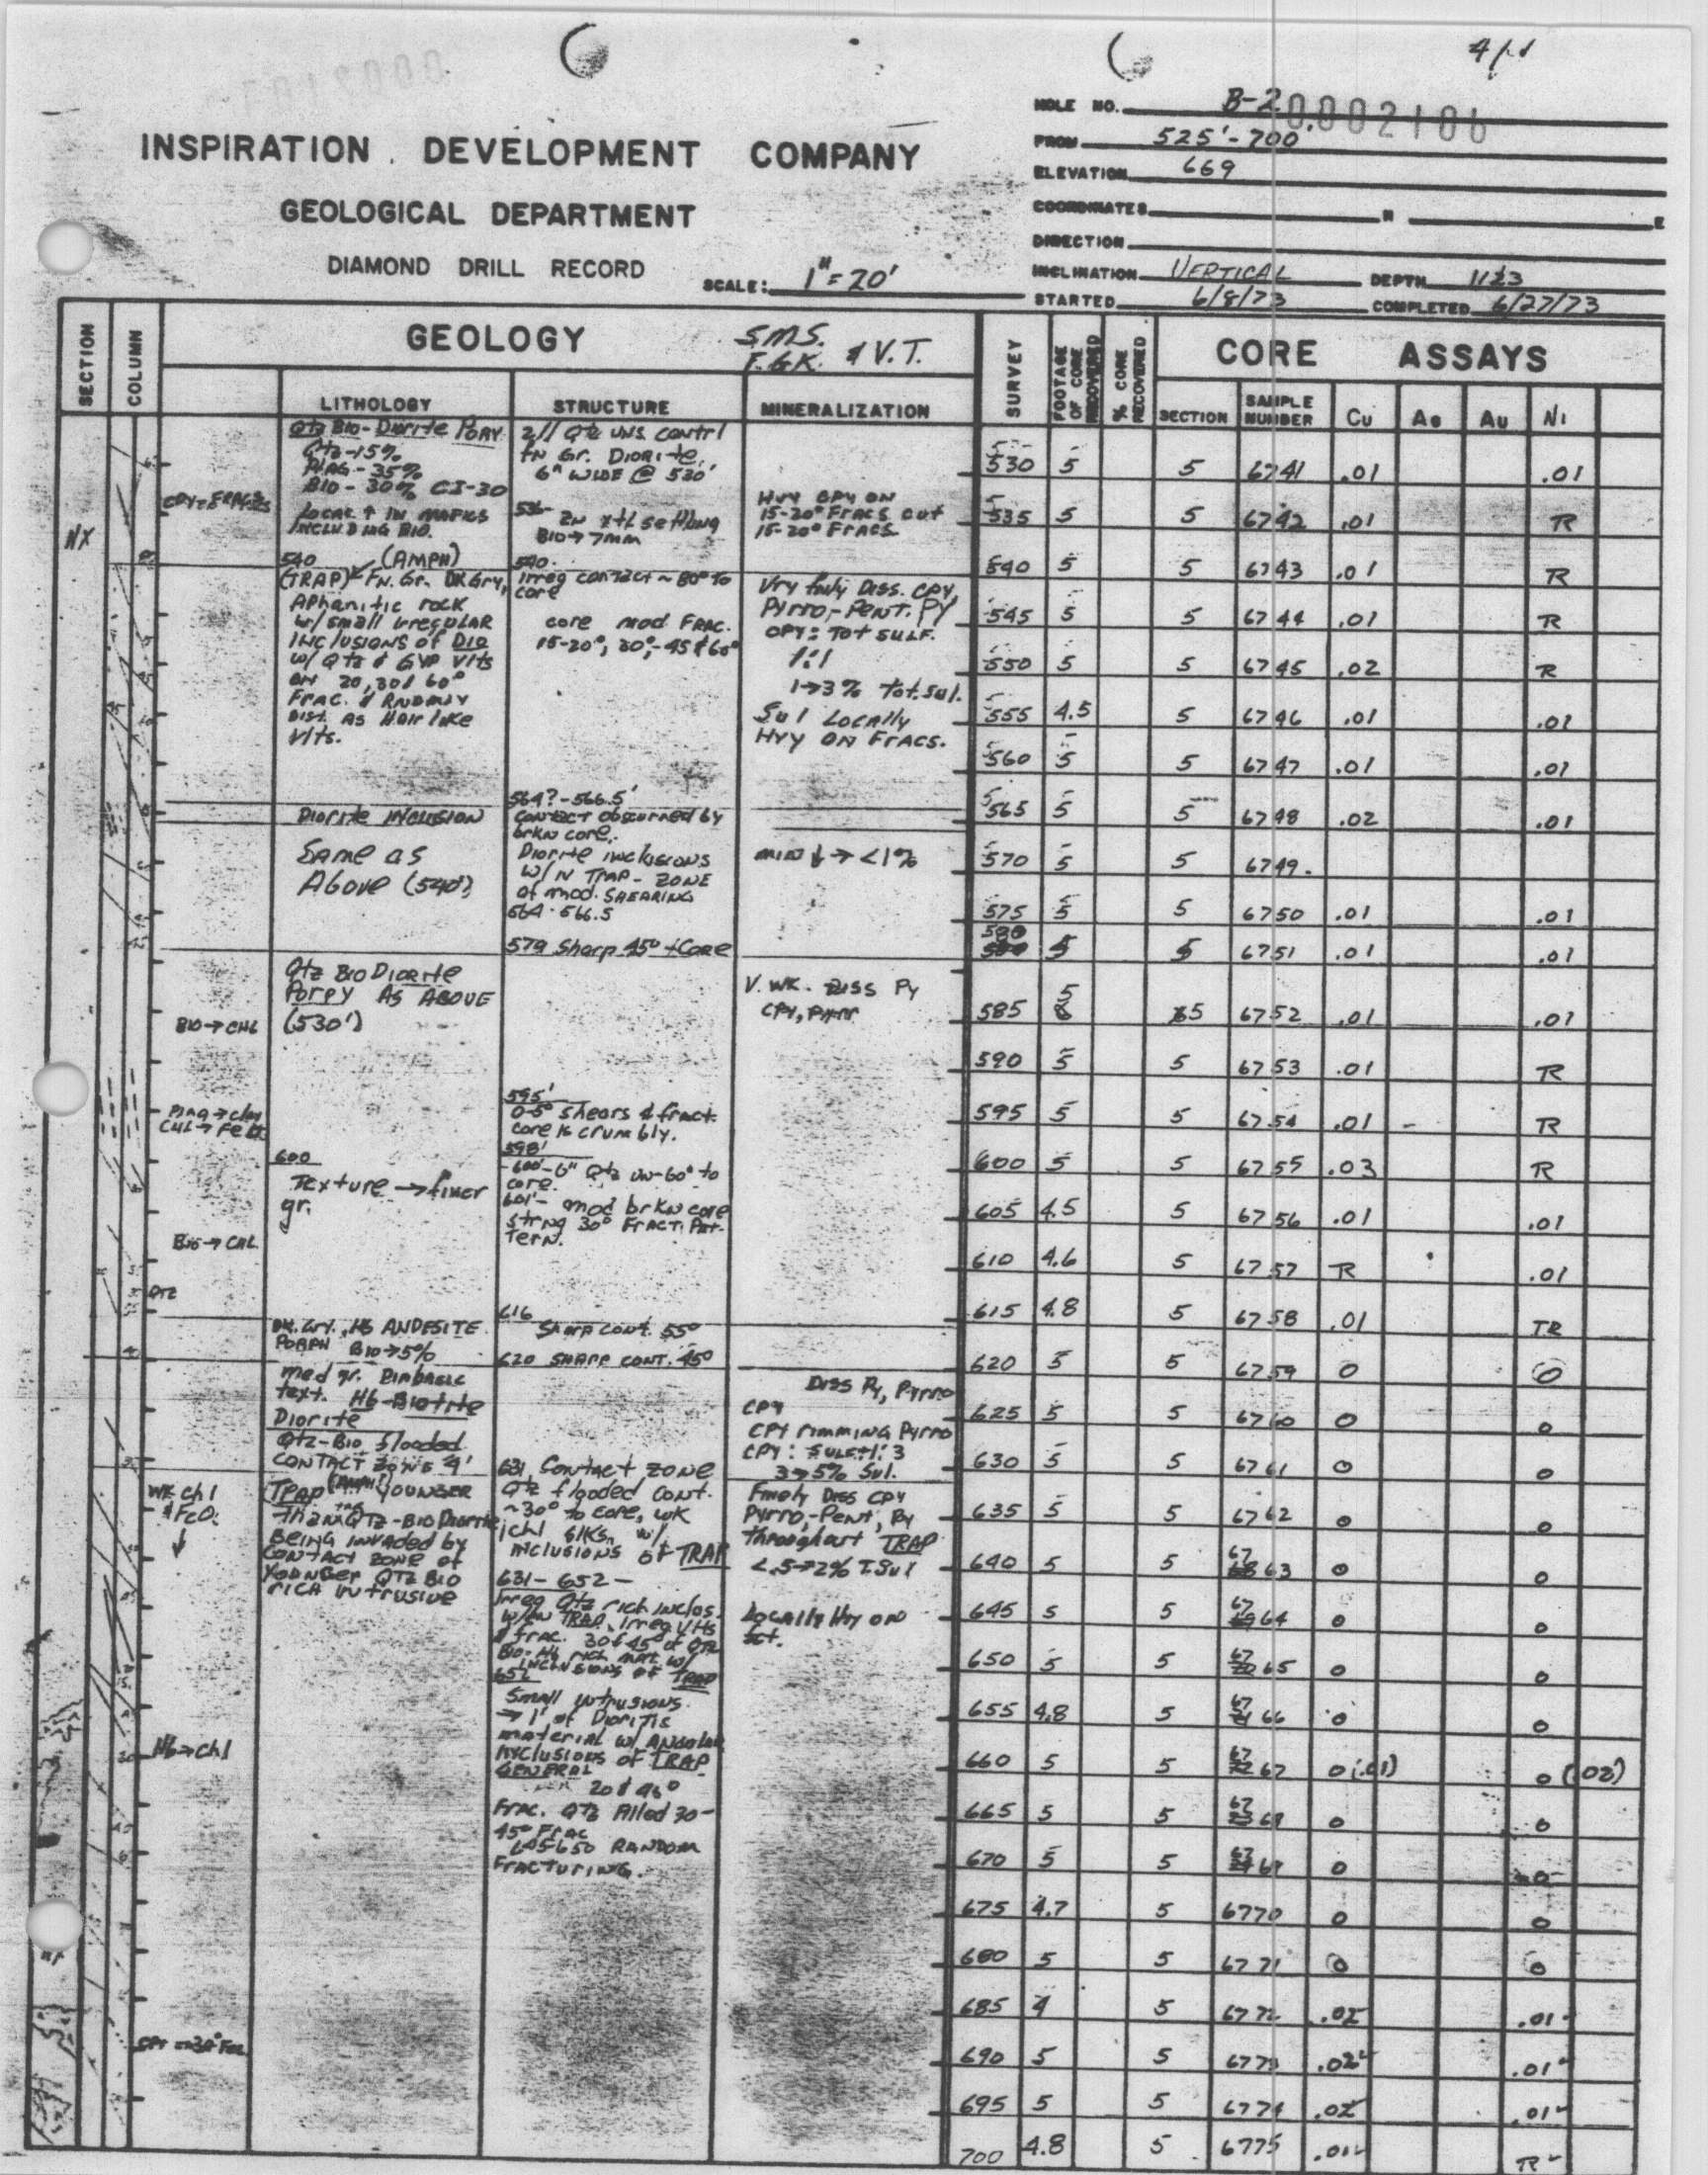 4/
HOLE NO. B-2 0002106
FROM 525'-700'
ELEVATION 669
COORDINATES N E
DIRECTION
INCLINATION VERTICAL DEPTH 1123
STARTED 6/8/73 COMPLETED 6/27/73
INSPIRATION DEVELOPMENT COMPANY
GEOLOGICAL DEPARTMENT
DIAMOND DRILL RECORD SCALE: 1"=20'
SECTION
COLUMN
GEOLOGY
S.M.S.
F.G.K. & V.T.
LITHOLOGY
STRUCTURE
MINERALIZATION
SURVEY
FOOTAGE OF CORE RECOVERED
% CORE RECOVERED
CORE ASSAYS
SECTION SAMPLE NUMBER Cu Ag Au Ni
NX
BIO→CHL
Plag→clay
BIO→CHL
QTZ
WK Chl
& FeO.
↓
Hb→chl
Qtz BIO-Diorite PORY
Qtz-15%
PLAG-35%
BIO-30% CI-30
LOCAL ↑ IN MAFICS
INCLUDING BIO.
540 (AMPH)
(TRAP) FN. Gr. DK Gry,
Aphanitic rock
w/small irregular
INCLUSIONS of DIO
w/ Qtz & GYP Vlts
ON 20, 30 & 60°
Frac. & RNDMLY
DIST. AS Hair like
Vlts.
Diorite INCLUSION
SAME as
Above (540')
Qtz BIO Diorite
Porpy AS ABOVE
(530')
600
Texture → finer
gr.
DK. Gry., Hb ANDESITE
PORPH BIO→5%
med gr. Diabasic
text. Hb-Biotite
Diorite
Qtz-Bio flooded
CONTACT ZONE 4'
TRAP (AMPH) YOUNGER
than Qtz-Bio Diorite
Being invaded by
CONTACT ZONE of
YOUNGER QTZ BIO
rich intrusive
2 // Qtz VNS. contrl
FN Gr. DIORITE.
6" WIDE @ 530'
536-
IN xtl settling
BIO→7mm
540-
Irreg contact ~ 80° to
core
core mod FRAC.
15-20°, 30°,-45 & 60°
564?-566.5'
Contact obscurred by
brkn core.
Diorite inclusions
W/IN TRAP- ZONE
of mod. SHEARING
564-566.5
579 Sharp 45° + Core
595'
0-5° shears & fract.
core is crumbly.
598'
-600'-6" Qtz VN-60° to
core.
601'- mod brkn core
strng 30° FRACT. Pat-
tern.
616
Sharp Cont. 55°
620 SHARP CONT. 45°
631 Contact ZONE
Qtz flooded cont.
~30° to core, WK
chl slks, w/
inclusions of TRAP
631-652-
Irreg Qtz rich inclus.
W/IN TRAP, irreg vlts
& frac. 30 & 45° of QTZ
BIO-Hb rich mat. w/
INCLUSIONS OF TRAP
652
Small intrusions
→ 1' of Dioritic
material w/ Angular
inclusions of TRAP
GENERAL
20 & 45°
Frac. Qtz filled 30-
45° Frac
645-650 RANDOM
FRACTURING.
Hvy CPY ON
15-20° FRACS cut
15-20° FRACS
Vry finly Diss. CPY,
Pyrro,-PENT. PY
CPY: TOT SULF.
1:1
1→3% Tot. Sul.
Sul Locally
Hvy ON FRACS.
min ↓ → <1%
V. WK. DISS Py
CPY, Pyrr
Diss Py, Pyrro
CPY
CPY rimming Pyrro
CPY: SULF=1:3
3→5% Sul.
Finely Diss CPY
Pyrro,-Pent, Py
throughout TRAP
<.5→2% T.Sul
Locally Hvy on
fct.
530 5 5 6741 .01 .01
535 5 5 6742 .01 TR
540 5 5 6743 .01 TR
545 5 5 6744 .01 TR
550 5 5 6745 .02 TR
555 4.5 5 6746 .01 .01
560 5 5 6747 .01 .01
565 5 5 6748 .02 .01
570 5 5 6749.
575 5 5 6750 .01 .01
580 5 5 6751 .01 .01
585 5 5 6752 .01 .01
590 5 5 6753 .01 TR
595 5 5 6754 .01 - TR
600 5 5 6755 .03 TR
605 4.5 5 6756 .01 .01
610 4.6 5 6757 TR .01
615 4.8 5 6758 .01 TR
620 5 5 6759 0 0
625 5 5 6760 0 0
630 5 5 6761 0 0
635 5 5 6762 0 0
640 5 5 6763 0 0
645 5 5 6764 0 0
650 5 5 6765 0 0
655 4.8 5 6766 0 0
660 5 5 6767 0(.01) 0(.02)
665 5 5 6768 0 0
670 5 5 6769 0 0
675 4.7 5 6770 0 0
680 5 5 6771 0 0
685 4 5 6772 .02 .01
690 5 5 6773 .02 .01
695 5 5 6774 .02 .01
700 4.8 5 6775 .01 TR